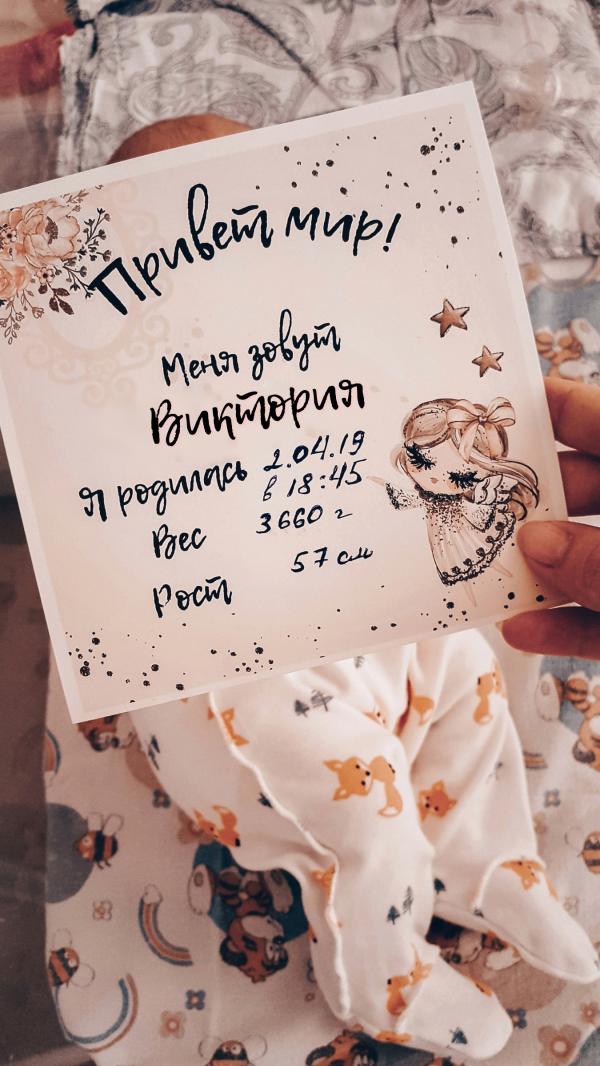 Привет мир!
Меня зовут
Виктория
Я родилась 2.04.19
в 18:45
Вес 3660 г
Рост 57 см